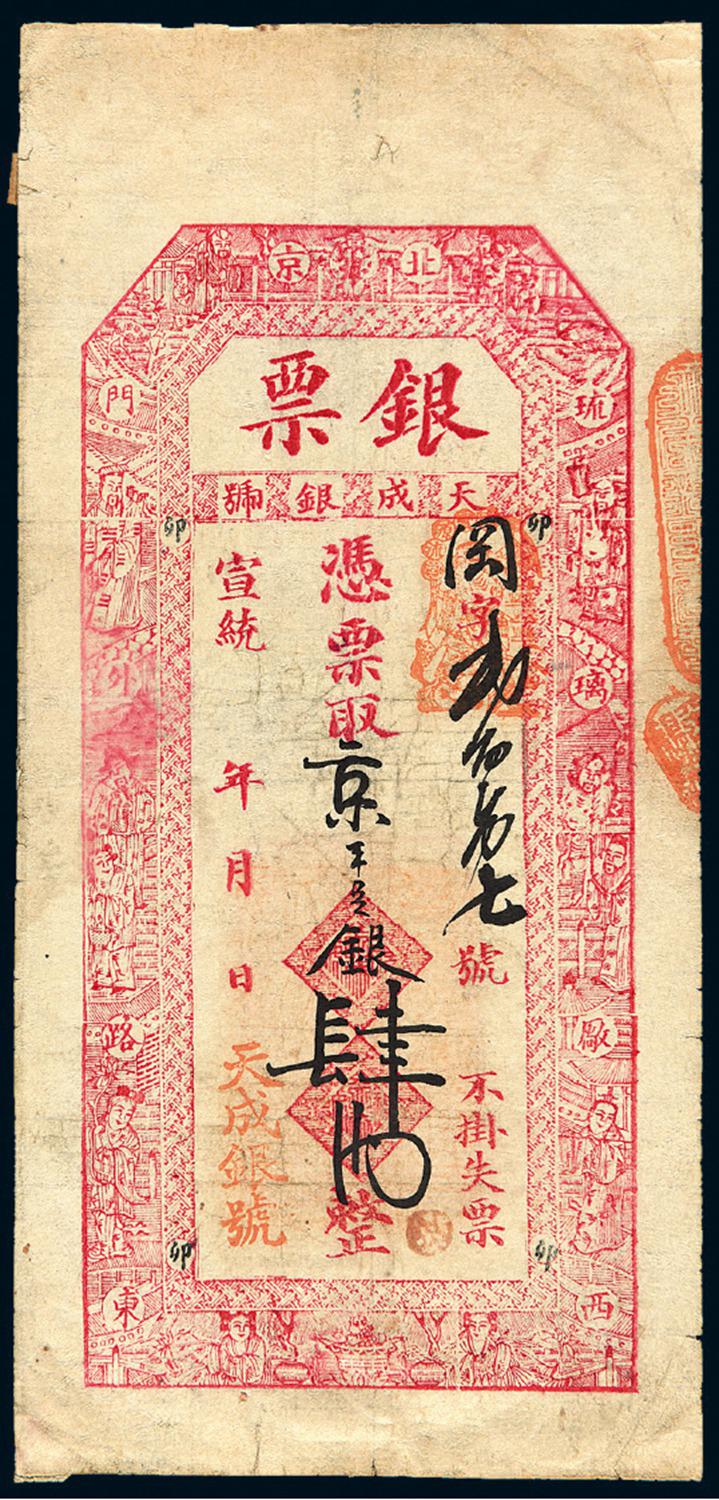 北京
琉璃廠西門路東
銀票
天成銀號
字
號
不掛失票
憑票取京平足銀肆兩整
宣統 年 月 日
天成銀號
卯
卯
卯
卯